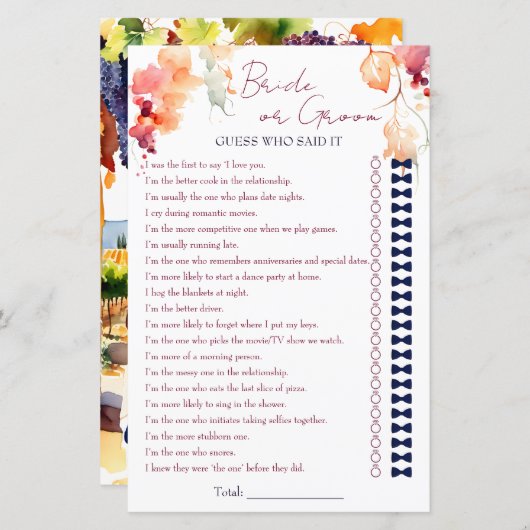 Bride
or Groom
GUESS WHO SAID IT
I was the first to say 'I love you.
I'm the better cook in the relationship.
I'm usually the one who plans date nights.
I cry during romantic movies.
I'm the more competitive one when we play games.
I'm usually running late.
I'm the one who remembers anniversaries and special dates.
I'm more likely to start a dance party at home.
I hog the blankets at night.
I'm the better driver.
I'm more likely to forget where I put my keys.
I'm the one who picks the movie/TV show we watch.
I'm more of a morning person.
I'm the messy one in the relationship.
I'm the one who eats the last slice of pizza.
I'm more likely to sing in the shower.
I'm the one who initiates taking selfies together.
I'm the more stubborn one.
I'm the one who snores.
I knew they were 'the one' before they did.
Total: ________________